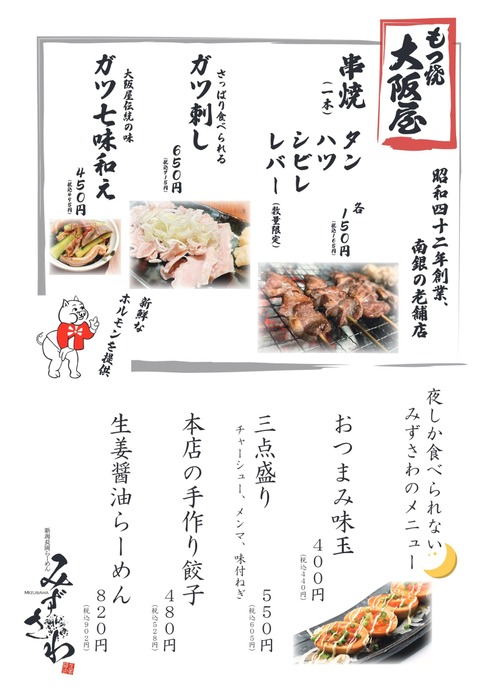 もつ焼
大阪屋
昭和四十二年創業、
南銀の老舗店
串焼
(一本)
タン
ハツ
シビレ
レバー(数量限定)
各
150円
(税込165円)
さっぱり食べられる
ガツ刺し
650円
(税込715円)
大阪屋伝統の味
ガツ七味和え
450円
(税込495円)
新鮮な
ホルモンを提供
夜しか食べられない
みずさわのメニュー
おつまみ味玉
400円
(税込440円)
三点盛り
チャーシュー、メンマ、味付ねぎ
550円
(税込605円)
本店の手作り餃子
480円
(税込528円)
生姜醤油らーめん
820円
(税込902円)
新潟長岡らーめん
みずさわ
MIZUSAWA